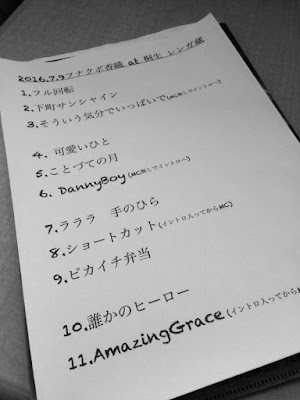 2016.7.9フナクボ香織 at 桐生 レンガ蔵
1.フル回転
2.下町サンシャイン
3.そういう気分でいっぱいで(MC無しでイントロへ)
4. 可愛いひと
5.ことづての月
6. DannyBoy(MC無しでイントロへ)
7.ラララ 手のひら
8.ショートカット(イントロ入ってからMC)
9.ピカイチ弁当
10.誰かのヒーロー
11.AmazingGrace(イントロ入ってから